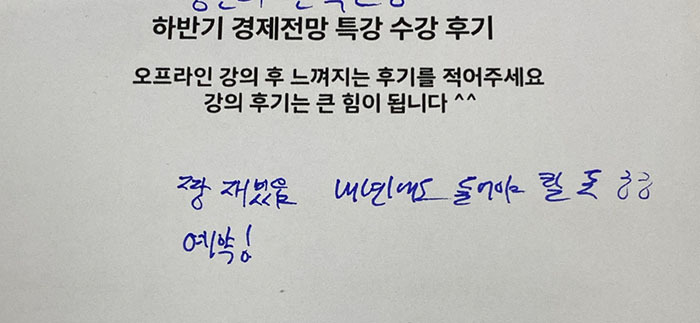 하반기 경제전망 특강 수강 후기
오프라인 강의 후 느껴지는 후기를 적어주세요
강의 후기는 큰 힘이 됩니다 ^^
짱 재밌음 내년에도 들어야 될 듯 ㅎㅎ
예약!